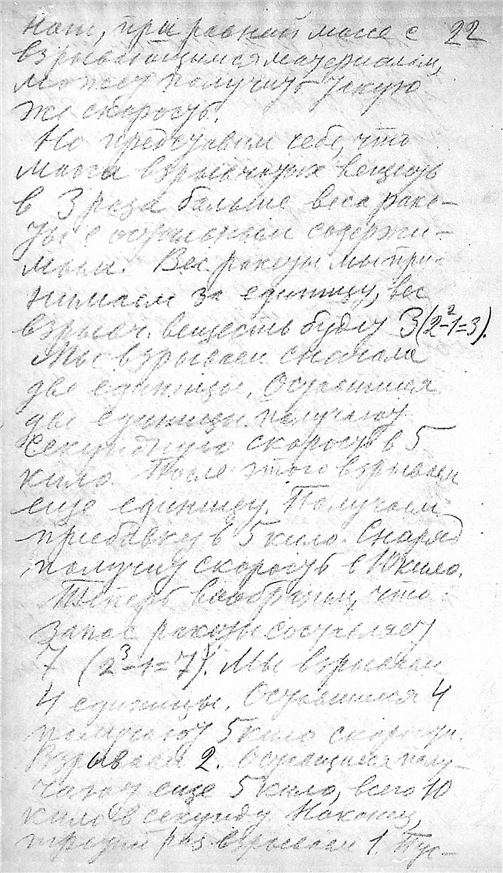 нат, при равной массе с 22
взрывающимся материалом,
может получить такую
же скорость.
Но представим себе, что
масса взрывчатых веществ
в 3 раза больше веса раке-
ты с остальным содержи-
мым. Вес ракеты мы при-
нимаем за единицу, вес
взрывч. веществ будет 3 (2²-1=3).
Мы взрываем сначала
две единицы. Оставшиеся
две единицы получают
секундную скорость в 5
кило. После этого взрываем
еще единицу. Получаем
прибавку в 5 кило. Снаряд
получит скорость в 10 кило.
Теперь вообразим, что
запас ракеты составляет
7 (2³-1=7). Мы взрываем
4 единицы. Оставшиеся 4
получают 5 кило скорости.
Взрываем 2. Оставшиеся полу-
чают еще 5 кило, всего 10
кило в секунду. Наконец,
третий раз взрываем 1. Пус-